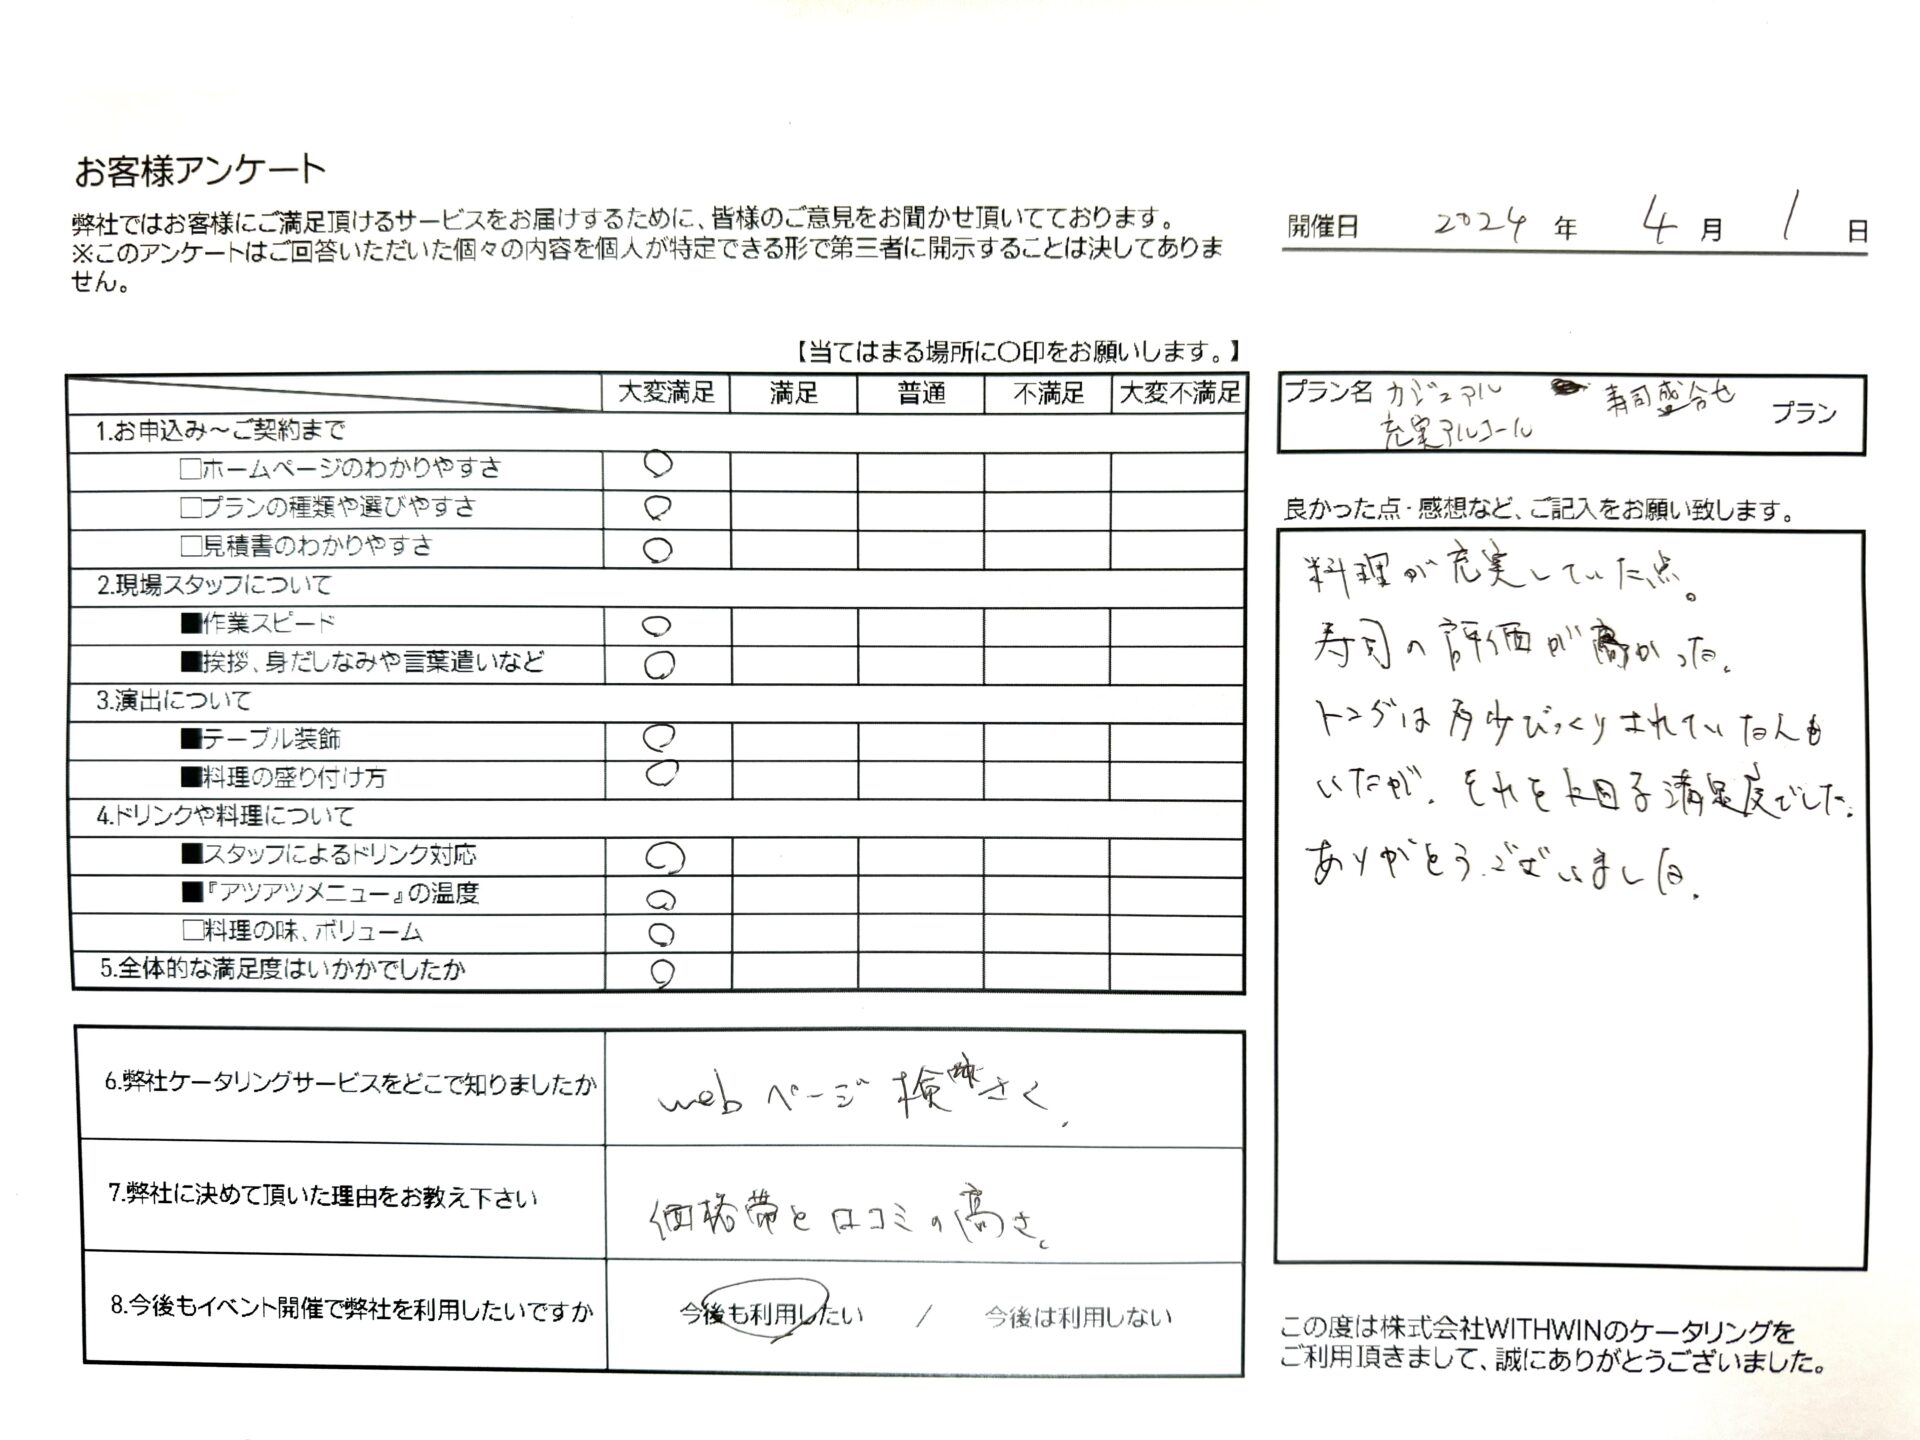 お客様アンケート
弊社ではお客様にご満足頂けるサービスをお届けするために、皆様のご意見をお聞かせ頂いてております。
※このアンケートはご回答いただいた個々の内容を個人が特定できる形で第三者に開示することは決してありま
せん。
開催日 2024 年 4 月 1 日
【当てはまる場所に〇印をお願いします。】
大変満足 満足 普通 不満足 大変不満足
1.お申込み～ご契約まで
□ホームページのわかりやすさ ○
□プランの種類や選びやすさ ○
□見積書のわかりやすさ ○
2.現場スタッフについて
■作業スピード ○
■挨拶、身だしなみや言葉遣いなど ○
3.演出について
■テーブル装飾 ○
■料理の盛り付け方 ○
4.ドリンクや料理について
■スタッフによるドリンク対応 ○
■『アツアツメニュー』の温度 ○
□料理の味、ボリューム ○
5.全体的な満足度はいかかでしたか ○
6.弊社ケータリングサービスをどこで知りましたか
webページ検さく.
7.弊社に決めて頂いた理由をお教え下さい
価格帯と口コミの高さ。
8.今後もイベント開催で弊社を利用したいですか
今後も利用したい / 今後は利用しない
プラン名 カジュアル 寿司盛合せ プラン
充実アルコール
良かった点・感想など、ご記入をお願い致します。
料理が充実していた点。
寿司の評価が高かった.
トングは多少びっくりされていた人も
いたが. それを 満足度でした.
ありがとうございました.
この度は株式会社WITHWINのケータリングを
ご利用頂きまして、誠にありがとうございました。